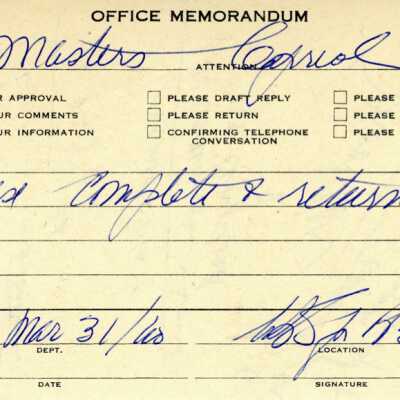 OFFICE MEMORANDUM
Masters ATTENTION
R APPROVAL PLEASE DRAFT REPLY PLEASE
UR COMMENTS PLEASE RETURN PLEASE
UR INFORMATION CONFIRMING TELEPHONE CONVERSATION PLEASE
complete & return
Mar 31/60
DEPT. LOCATION
DATE SIGNATURE